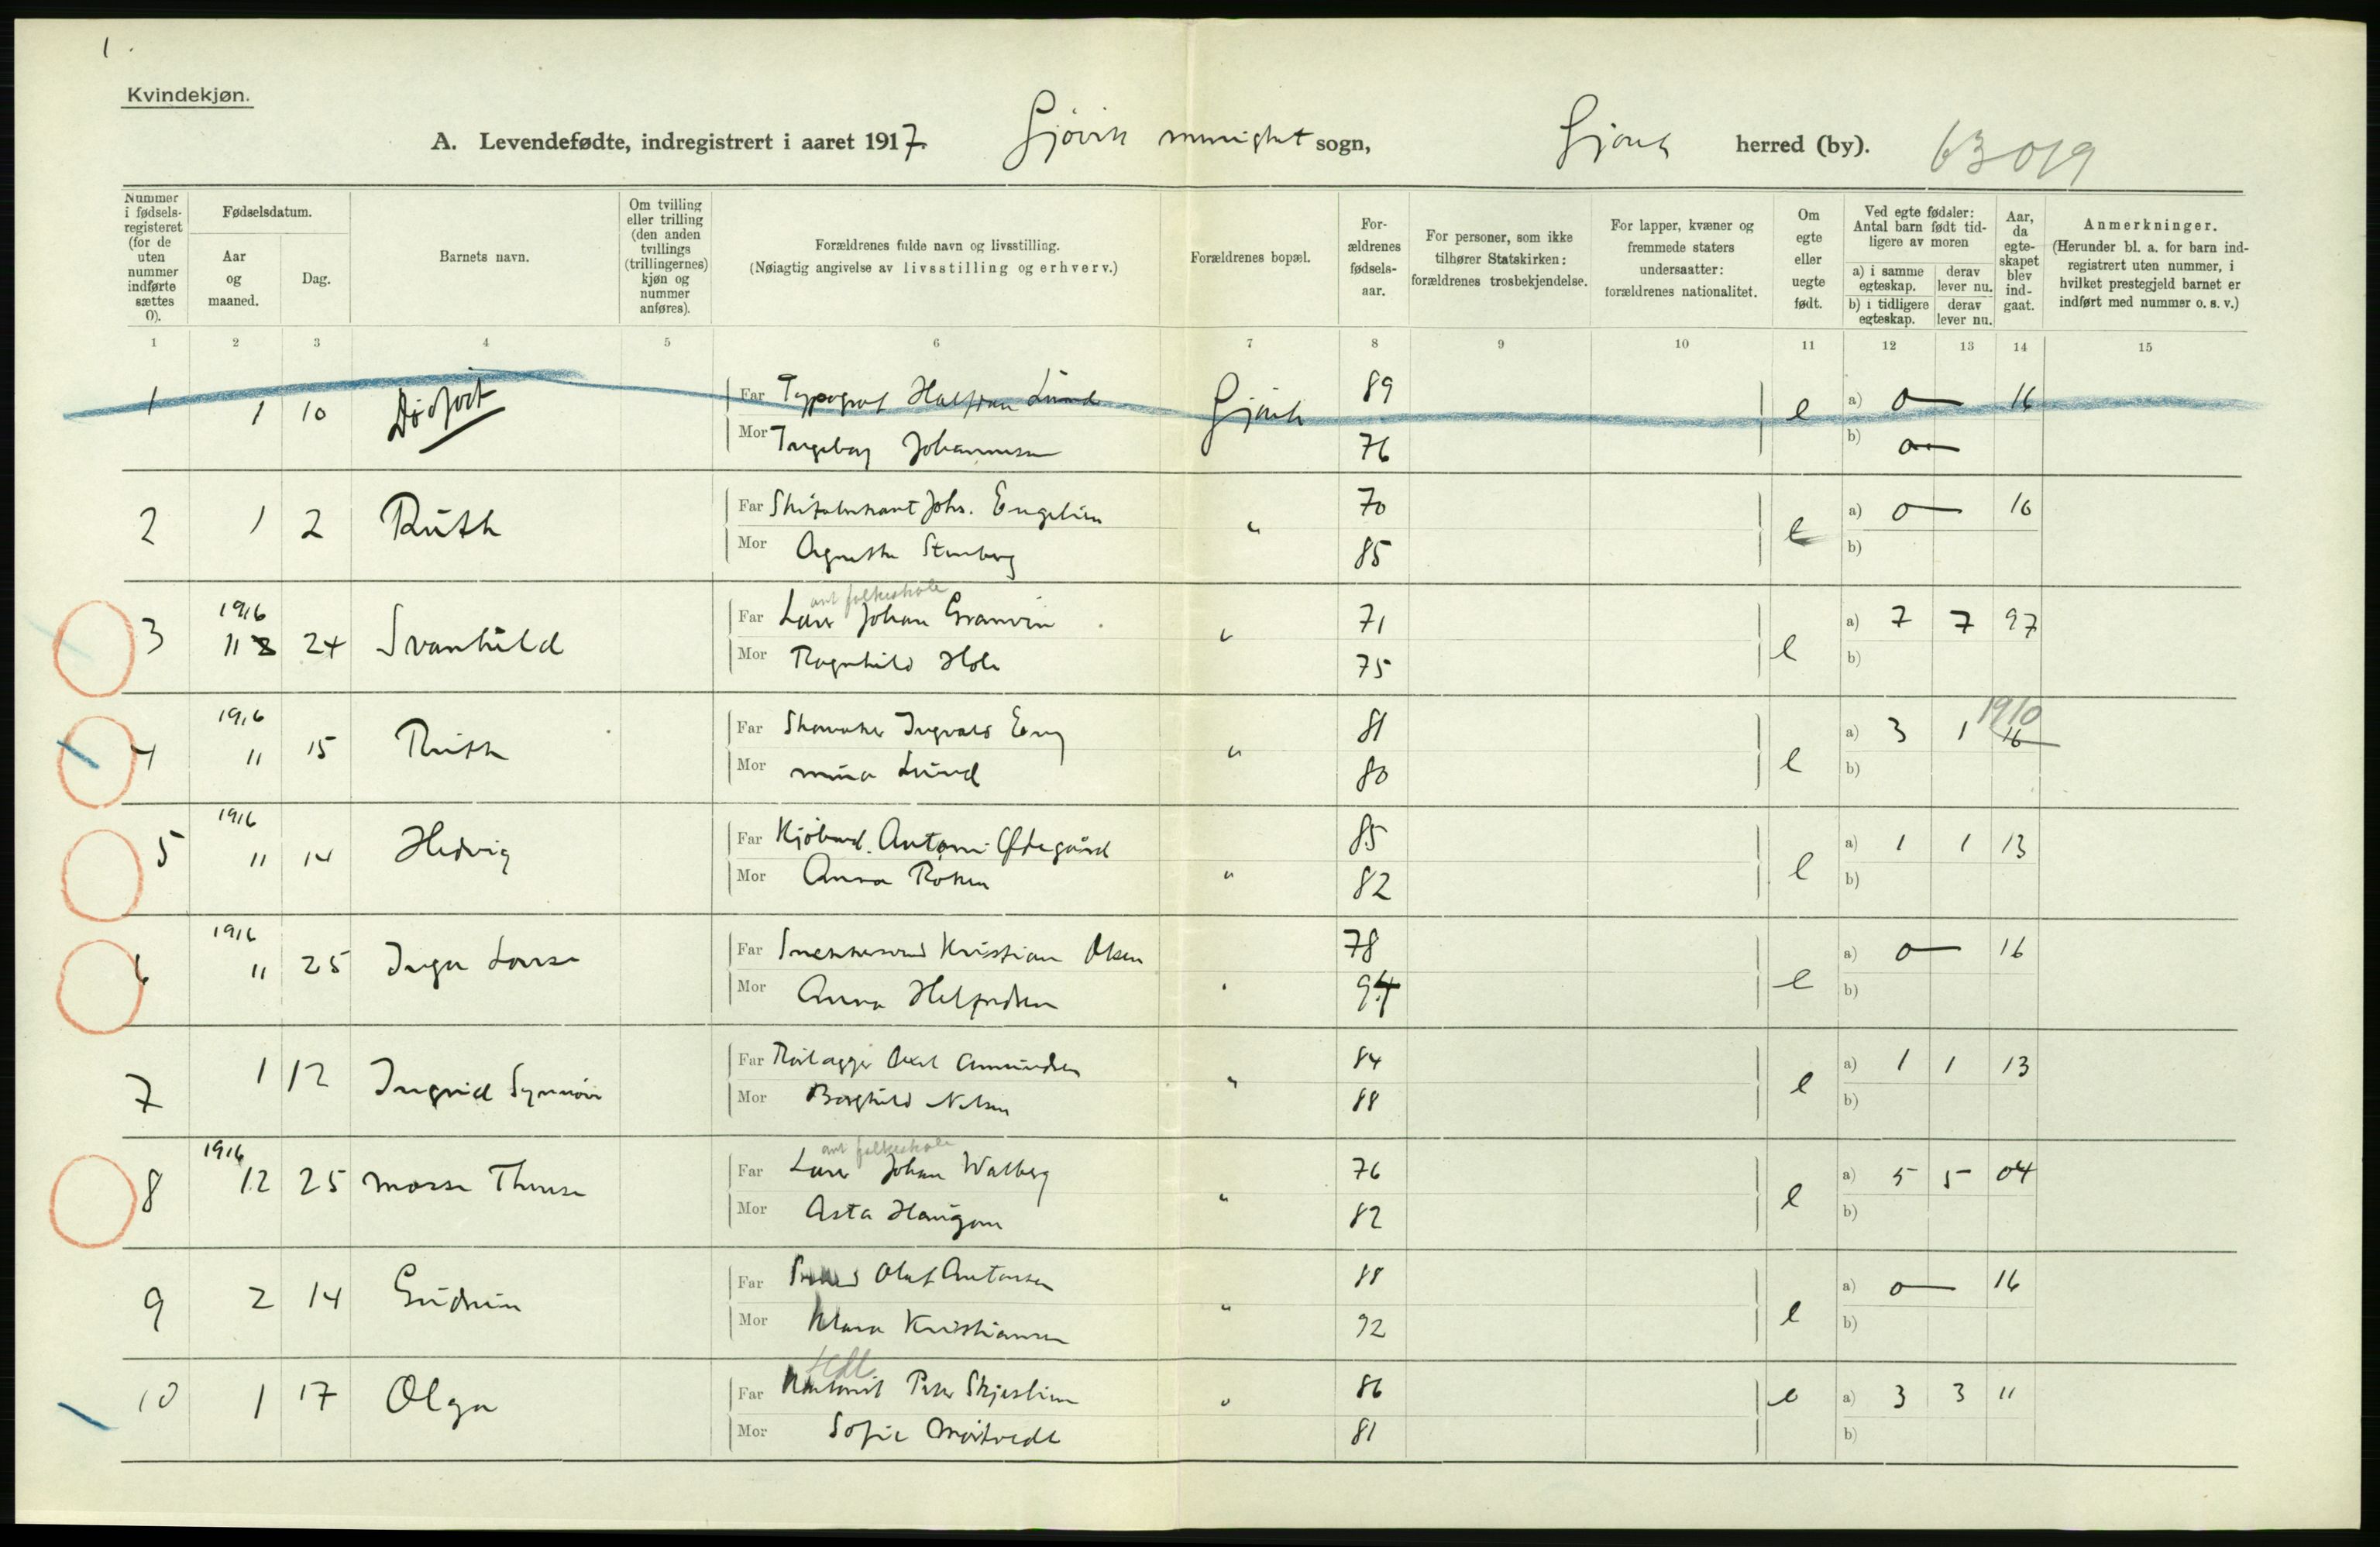 1.
Kvindekjøn.
A. Levendefødte, indregistrert i aaret 1917. Gjøvik menighet sogn, Gjøvik herred (by). 63019
Nummer i fødsels-registeret (for de uten nummer indførte sættes 0).
Fødselsdatum.
Aar og maaned.
Dag.
Barnets navn.
Om tvilling eller trilling (den anden tvillings (trillingernes) kjøn og nummer anføres).
Forældrenes fulde navn og livsstilling.
(Nøiagtig angivelse av livsstilling og erhverv.)
Forældrenes bopæl.
For-ældrenes fødsels-aar.
For personer, som ikke tilhører Statskirken: forældrenes trosbekjendelse.
For lapper, kvæner og fremmede staters undersaatter: forældrenes nationalitet.
Om egte eller uegte født.
Ved egte fødsler: Antal barn født tid-ligere av moren
a) i samme egteskap. derav lever nu.
b) i tidligere egteskap. derav lever nu.
Aar, da egte-skapet blev ind-gaat.
Anmerkninger.
(Herunder bl. a. for barn ind-registrert uten nummer, i hvilket prestegjeld barnet er indført med nummer o. s. v.)
1 2 3 4 5 6 7 8 9 10 11 12 13 14 15
1 1 10 Dødfødt Far Typograf Halfdan Lund Gjøvik 89 e a) 0 16
Mor Ingeborg Johannesen 76 b) 0
2 1 2 Ruth Far Johs. Engelien " 70 e a) 0 16
Mor Agnethe Stenberg 85 b)
amt folkeskole
3 1916 11 24 Svanhild Far Lærer Johan Granvin " 71 e a) 7 7 97
Mor Ragnhild Hole 75 b)
4 1916 " 15 Ruth Far Skomaker Ingvald Eng " 81 e a) 3 1 1910 16
Mor Mina Lund 80 b)
5 1916 " 14 Hedvig Far Kjøbmd. Anton Ødegård 85 e a) 1 1 13
Mor Anna " 82 b)
6 1916 " 25 Inga Lovise Far Snekkersvend Kristian Olsen 78 e a) 0 16
Mor Anna Helfredsen " 94 b)
7 1 12 Ingrid Synnøve Far Rørlægger Axel Amundsen " 84 e a) 1 1 13
Mor Borghild Nilsen 88 b)
amt folkeskole
8 1916 12 25 Therese Far Lærer Johan Walberg " 76 e a) 5 5 04
Mor Asta Haugom 82 b)
9 2 14 Gudrun Far Olaf Antonsen " 88 e a) 0 16
Mor Klara Kristiansen 92 b)
10 1 17 Olga Far Peter Skjeslien " 86 e a) 3 3 11
Mor Sofie 81 b)